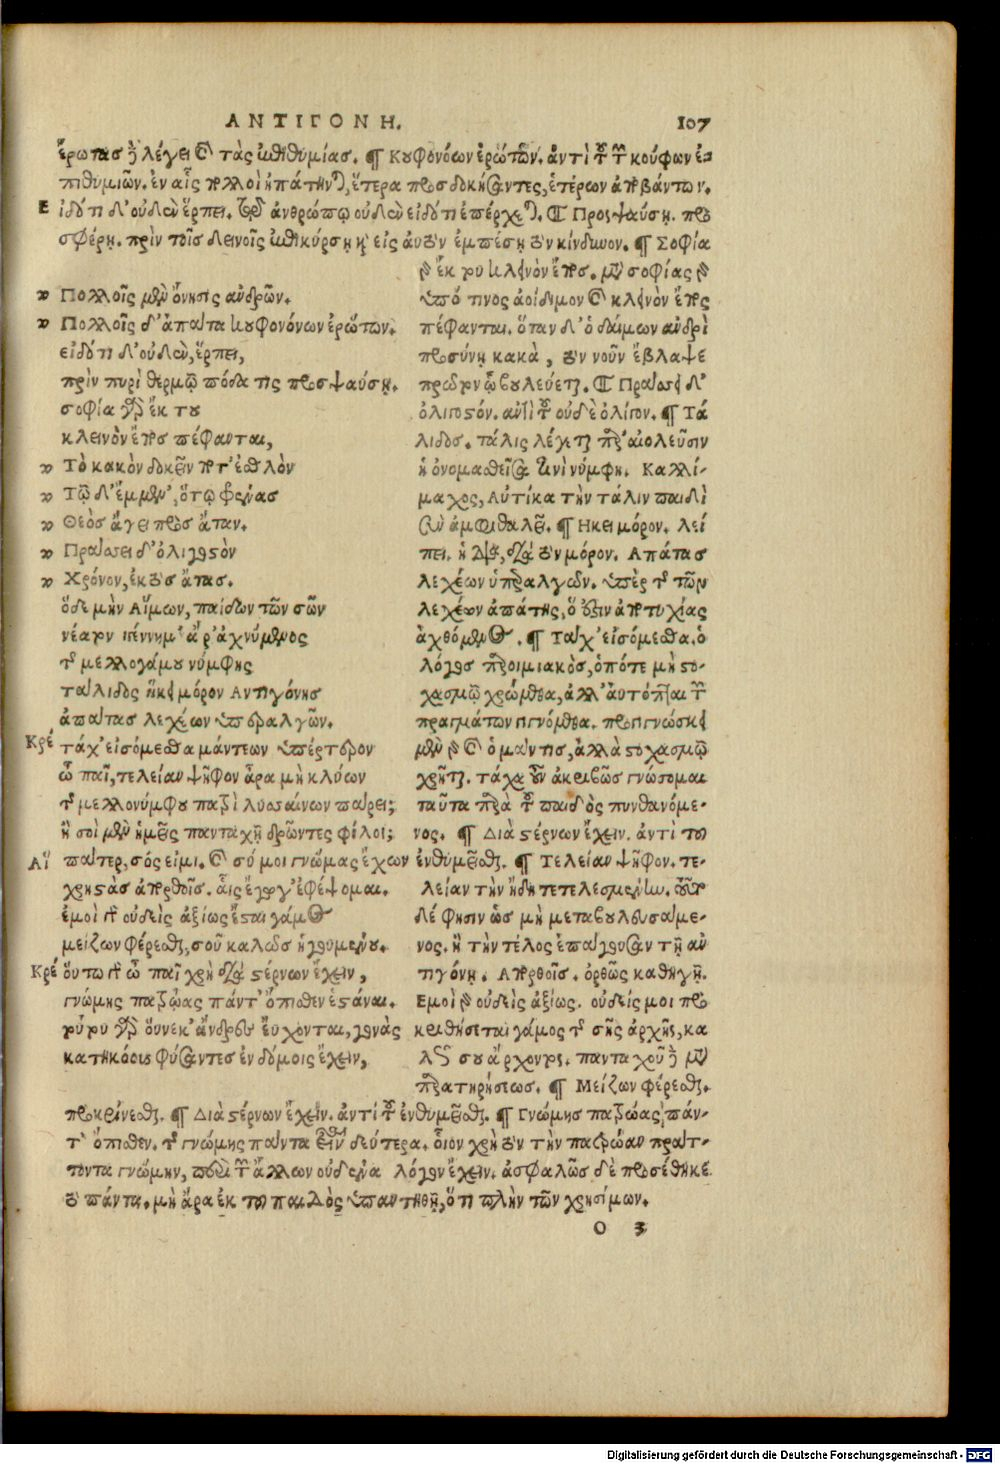 ΑΝΤΙΓΟΝΗ. 107
ἔρωτας δὲ λέγει καὶ τὰς ἐπιθυμίας. ¶ Κουφονόων ἐρώτων. ἀντὶ τοῦ τῶν κούφων ἐ-
πιθυμιῶν. ἐν αἷς πολλοὶ ἠπάτηνται, ἕτερα προσδοκήσαντες, ἑτέρων ἀποβάντων.
Ε ἰδότι δ' οὐδὲν ἕρπει. τῷ δὲ ἀνθρώπῳ οὐδὲν εἰδότι ἐπέρχεται. ¶ Προςψαύσῃ. προ
σφέρῃ. πρὶν τοῖς δεινοῖς ἐπικύρσῃ καὶ εἰς αὐτὸν ἐμπέσῃ τὸν κίνδυνον. ¶ Σοφία
Πολλοῖς μὲν ὄνησις ἀνδρῶν.
Πολλοῖς δ' ἀπάτα κουφονόνων ἐρώτων.
εἰδότι δ' οὐδὲν, ἕρπει,
πρὶν πυρὶ θερμῷ πόδα τις προσψαύσῃ.
σοφία γὰρ ἔκ του
κλεινὸν ἔπος πέφανται,
Τὸ κακὸν δοκεῖν ποτ' ἐσθλὸν
Τῷ δ' ἔμμεν', ὅτῳ φρένας
Θεὸς ἄγει πρὸς ἄταν.
Πράσσει δ' ὀλιγοστὸν
Χρόνον, ἐκτὸς ἄτας.
ὅδε μὴν Αἵμων, παίδων τῶν σῶν
νέατον γέννημ' ἆρ' ἀχνύμενος
τῆς μελλογάμου νύμφης
τάλιδος ἥκει μόρον Αντιγόνης
ἀπάτας λεχέων ὑπεραλγῶν.
Κρέ τάχ' εἰσόμεσθα μάντεων ὑπέρτερον
ὦ παῖ, τελείαν ψῆφον ἆρα μὴ κλύων
τῆς μελλονύμφου πατρὶ λυσσαίνων πάρει;
ἢ σοὶ μὲν ἡμεῖς πανταχῇ δρῶντες φίλοι;
Αἵ πάτερ, σός εἰμι. καὶ σύ μοι γνώμας ἔχων
χρηστὰς ἀπορθοῖς. αἷς ἔγωγ' ἐφέψομαι.
ἐμοὶ γὰρ οὐδεὶς ἀξίως ἔσται γάμος
μείζων φέρεσθαι, σοῦ καλῶς ἡγουμένου.
Κρέ οὕτω γὰρ ὦ παῖ χρὴ διὰ στέρνων ἔχειν,
γνώμης πατρῴας πάντ' ὄπισθεν ἑστάναι.
τούτου γὰρ οὕνεκ' ἄνδρες εὔχονται, γονὰς
κατηκόους φύσαντες ἐν δόμοις ἔχειν,
γὰρ ἔκ του κλεινὸν ἔπος. μετὰ σοφίας γὰρ
ὑπό τινος ἀοίδιμον καὶ κλεινὸν ἔπος
πέφανται. ὅταν δ' ὁ δαίμων ἀνδρὶ
πορσύνῃ κακὰ, τὸν νοῦν ἔβλαψε
πρῶτον ᾧ βουλεύεται. ¶ Πράσσει δ'
ὀλιγοστόν. ἀντὶ τοῦ οὐδὲ ὀλίγον. ¶ Τά
λιδος. τάλις λέγεται παρ' αἰολεῦσιν
ἡ ὀνομασθεῖσα τινὶ νύμφη. Καλλί-
μαχος, Αὐτίκα τὴν τάλιν παιδὶ
σὺν ἀμφιθαλεῖ. ¶ Ηκει μόρον. λεί
πει. ἡ διὰ, διὰ τὸν μόρον. Απάτας
λεχέων ὑπεραλγῶν. ὑπὲρ τῆς τῶν
λεχέων ἀπάτης, ὅ ἐστιν ἀποτυχίας
ἀχθόμενος. ¶ Τάχ' εἰσόμεσθα. ὁ
λόγος παροιμιακὸς, ὁπότε μὴ στο-
χασμῷ χρώμεθα, ἀλλ' αὐτόπται τῶν
πραγμάτων γινόμεθα. προγινώσκει
μὲν γὰρ καὶ ὁ μάντις, ἀλλὰ στοχασμῷ
χρῆται. τάχα οὖν ἀκριβῶς γνώσομαι
ταῦτα παρὰ τοῦ παιδὸς πυνθανόμε-
νος. ¶ Διὰ στέρνων ἔχειν. ἀντὶ τοῦ
ἐνθυμεῖσθαι. ¶ Τελείαν ψῆφον. τε-
λείαν τὴν ἤδη τετελεσμένην. οὗτος
δέ φησιν ὡς μὴ μεταβουλευσαμέ-
νος. ἢ τὴν τέλος ἐπάγουσαν τῇ ἀν
τιγόνῃ. Απορθοῖς. ὀρθῶς καθηγῇ.
Εμοὶ γὰρ οὐδεὶς ἀξίως. οὐδείς μοι προ
κριθήσεται γάμος τῆς σῆς ἀρχῆς, κα
λῶς σοῦ ἄρχοντος. πανταχοῦ δὲ μετὰ
παρατηρήσεως. ¶ Μείζων φέρεσθαι.
προκρίνεσθαι. ¶ Διὰ στέρνων ἔχειν. ἀντὶ τοῦ ἐνθυμεῖσθαι. ¶ Γνώμης πατρῴας πάν-
τ' ὄπισθεν. τῆς γνώμης πάντα εἶναι δεύτερα. οἷον χρὴ τὸν τὴν πατρῴαν πράτ-
τοντα γνώμην, περὶ τῶν ἄλλων οὐδένα λόγον ἔχειν. ἀσφαλῶς δὲ προσέθηκε
τὸ πάντα. μὴ ἄρα ἐκ τοῦ παιδὸς ὑπαντηθῇ, ὅτι πλὴν τῶν χρησίμων.
O 3
Digitalisierung gefördert durch die Deutsche Forschungsgemeinschaft - DFG